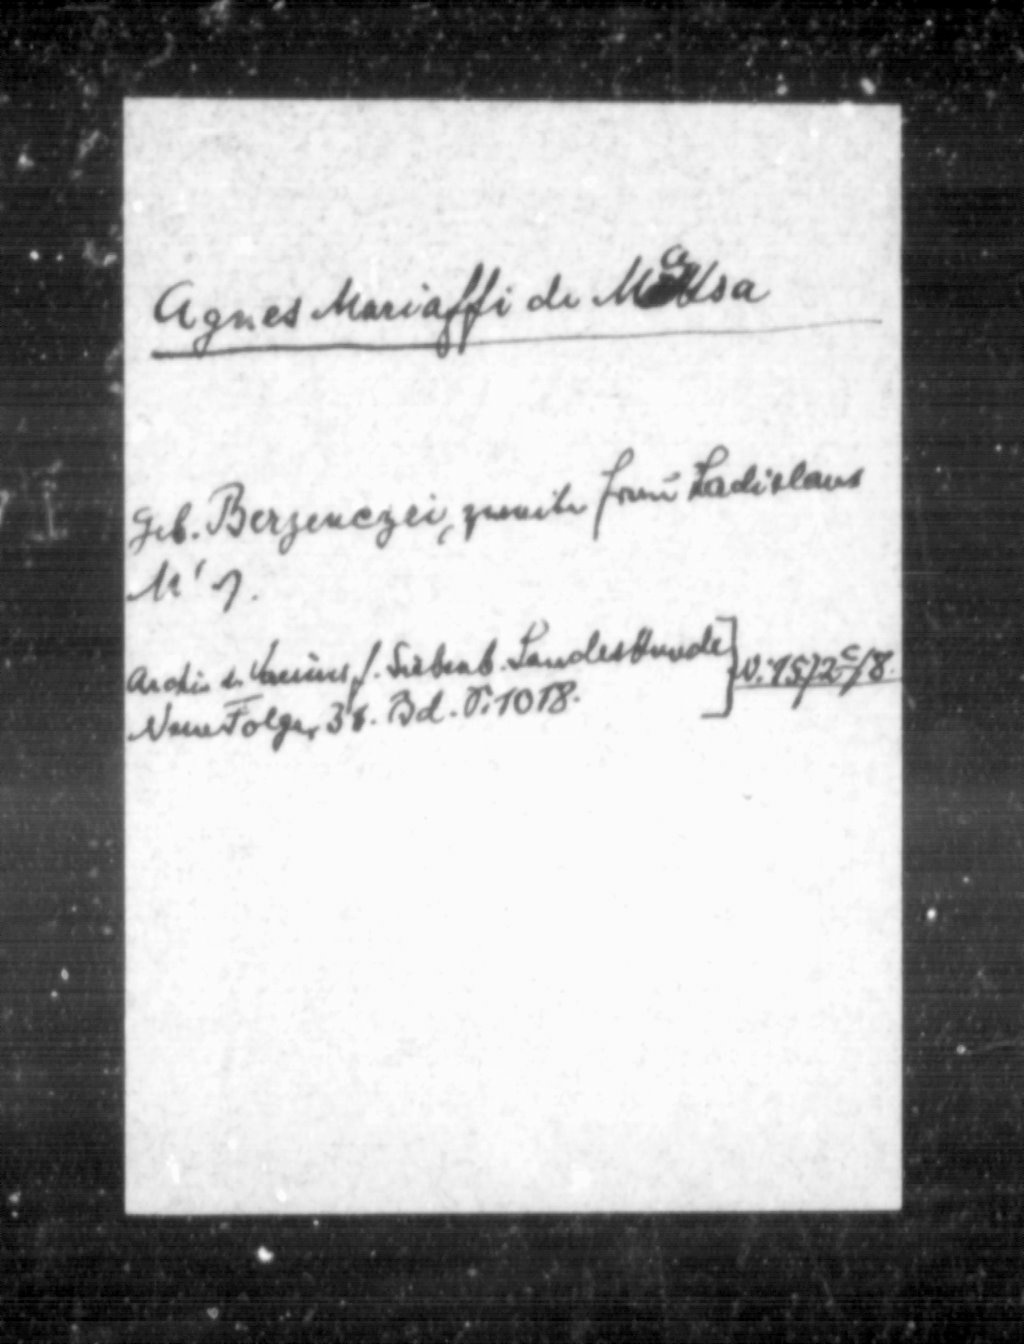 Agnes Mariaffi de Maksa
Geb. Berzenczei, zweite Frau Ladislaus
M's.
Archiv d. Vereins f. Siebenb. Landeskunde
Neue Folge, 31. Bd. S. 1018.
] V. 15/2c/8.